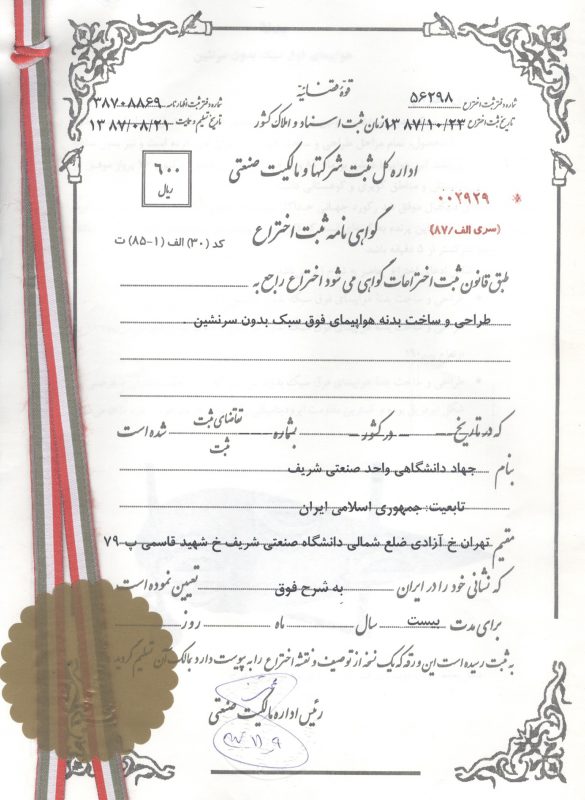 قوه قضائیه
شماره دفتر ثبت اختراع ۵۶۲۹۸
تاریخ ثبت اختراع ۱۳۸۷/۱۰/۲۳
سازمان ثبت اسناد و املاک کشور
شماره دفتر ثبت اظهارنامه ۳۸۷۰۸۸۶۹
تاریخ تسلیم ۱۳۸۷/۰۸/۲۱
اداره کل ثبت شرکتها و مالکیت صنعتی
۶۰۰
ریال
۰۰۲۹۲۹ *
(سری الف/۸۷)
گواهی نامه ثبت اختراع
کد (۳۰) الف (۱-۸۵) ت
طبق قانون ثبت اختراعات گواهی می شود اختراع راجع به
طراحی و ساخت بدنه هواپیمای فوق سبک بدون سرنشین .
که در تاریخ در کشور بشماره تقاضای ثبت شده است
ثبت
بنام جهاد دانشگاهی واحد صنعتی شریف
تابعیت: جمهوری اسلامی ایران
مقیم تهران خ آزادی ضلع شمالی دانشگاه صنعتی شریف خ شهید قاسمی پ ۷۹
که نشانی خود را در ایران به شرح فوق تعیین نموده است
برای مدت بیست سال ماه روز
به ثبت رسیده است این ورقه که یک نسخه از توصیف و نقشه اختراع را به پیوست دارد بمالک آن تسلیم گردید
رئیس اداره مالکیت صنعتی